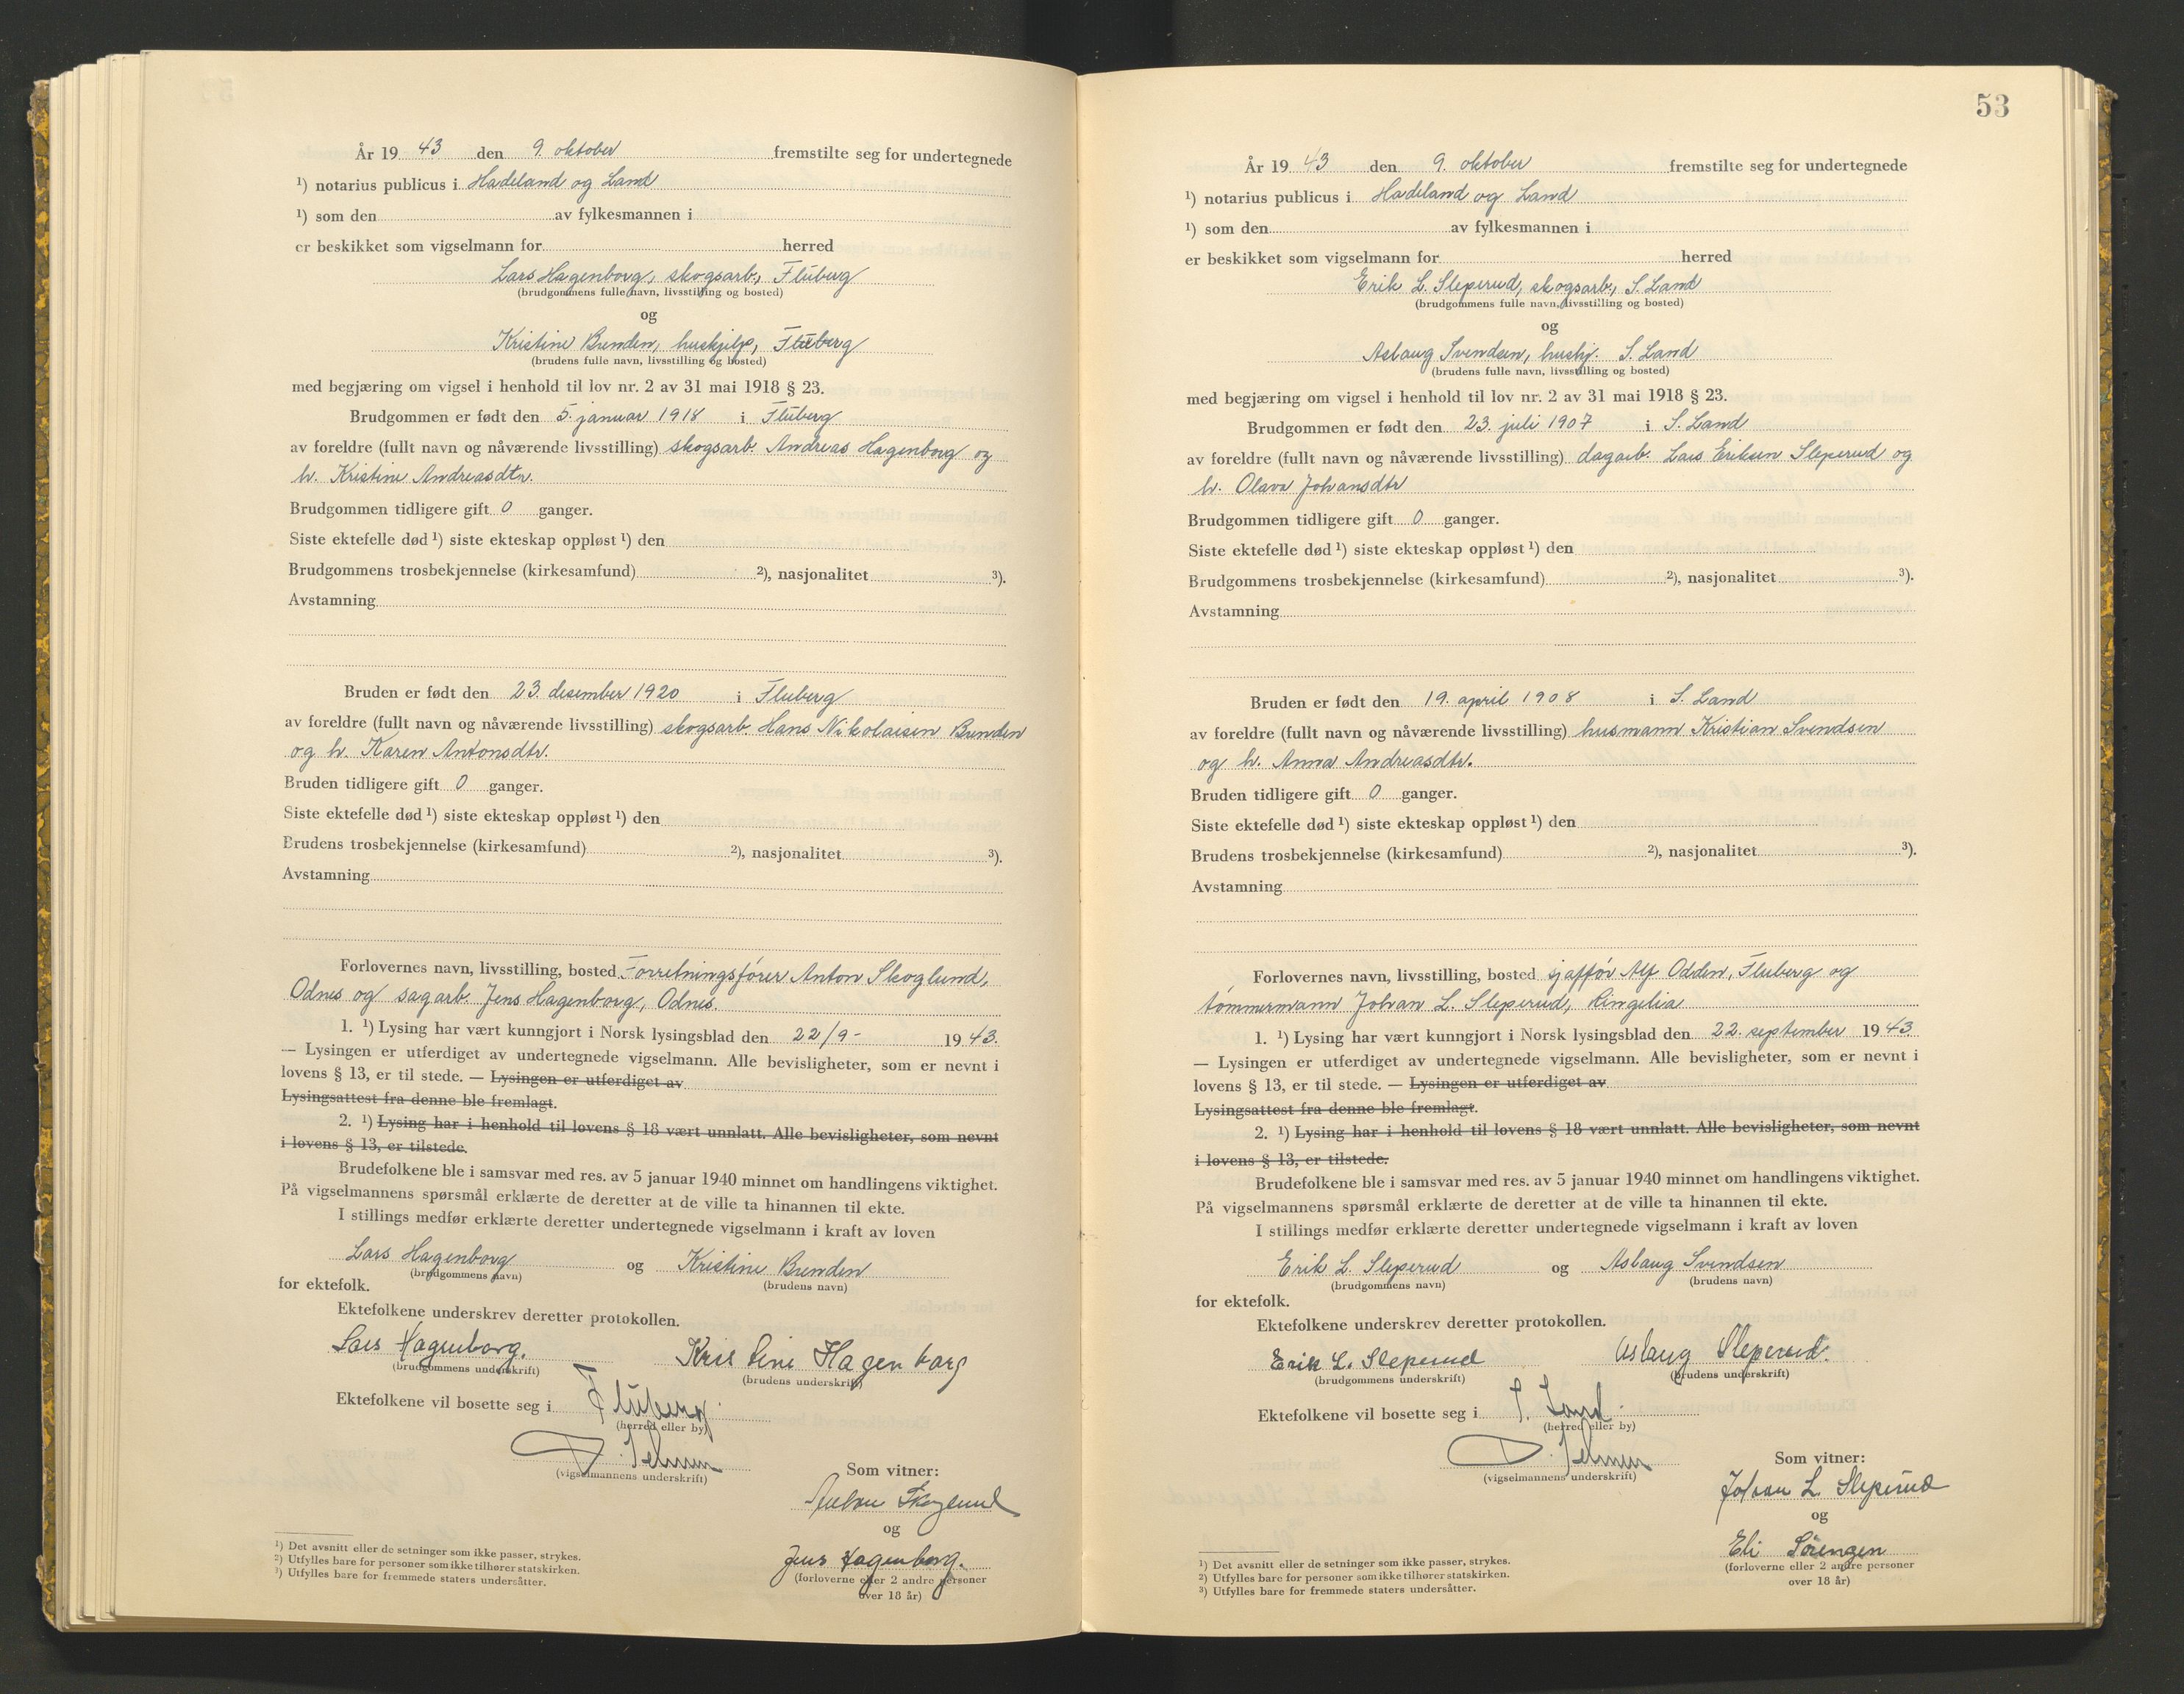 År 19 43 den 9. oktober fremstilte seg for undertegnede
¹) notarius publicus i Hadeland og Land
¹) som den av fylkesmannen i
er beskikket som vigselmann for herred
Lars Hagenborg, skogsarb., Fluberg
(brudgommens fulle navn, livsstilling og bosted)
og
Kristine Brenden, huskjelp, Fluberg
(brudens fulle navn, livsstilling og bosted)
med begjæring om vigsel i henhold til lov nr. 2 av 31 mai 1918 § 23.
Brudgommen er født den 5. januar 1918 i Fluberg
av foreldre (fullt navn og nåværende livsstilling) skogsarb. Andreas Hagenborg og
h. Kristine Andreasdtr.
Brudgommen tidligere gift 0 ganger.
Siste ektefelle død ¹) siste ekteskap oppløst ¹) den
Brudgommens trosbekjennelse (kirkesamfund) ²), nasjonalitet ³).
Avstamning
Bruden er født den 23. desember 1920 i Fluberg
av foreldre (fullt navn og nåværende livsstilling) skogsarb. Hans Nikolaisen Brenden
og h. Karen Antonsdtr.
Bruden tidligere gift 0 ganger.
Siste ektefelle død ¹) siste ekteskap oppløst ¹) den
Brudens trosbekjennelse (kirkesamfund) ²), nasjonalitet ³).
Avstamning
Forlovernes navn, livsstilling, bosted Forretningsfører Anton Skoglund,
Odnes og sagarb. Jens Hagenborg, Odnes.
1. ¹) Lysing har vært kunngjort i Norsk lysingsblad den 22/9- 1943.
— Lysingen er utferdiget av undertegnede vigselmann. Alle bevisligheter, som er nevnt i
lovens § 13, er til stede. — Lysingen er utferdiget av
Lysingsattest fra denne ble fremlagt.
2. ¹) Lysing har i henhold til lovens § 18 vært unnlatt. Alle bevisligheter, som nevnt
i lovens § 13, er tilstede.
Brudefolkene ble i samsvar med res. av 5 januar 1940 minnet om handlingens viktighet.
På vigselmannens spørsmål erklærte de deretter at de ville ta hinannen til ekte.
I stillings medfør erklærte deretter undertegnede vigselmann i kraft av loven
Lars Hagenborg og Kristine Brenden
(brudgommens navn) (brudens navn)
for ektefolk.
Ektefolkene underskrev deretter protokollen.
Lars Hagenborg. Kristine Hagenborg
(brudgommens underskrift) (brudens underskrift)
Ektefolkene vil bosette seg i Fluberg.
(herred eller by)
(vigselmannens underskrift)
Som vitner:
Anton Skoglund
og
Jens Hagenborg.
(forloverne eller 2 andre personer
over 18 år)
¹) Det avsnitt eller de setninger som ikke passer, strykes.
²) Utfylles bare for personer som ikke tilhører statskirken.
³) Utfylles bare for fremmede staters undersåtter.
53
År 19 43 den 9. oktober fremstilte seg for undertegnede
¹) notarius publicus i Hadeland og Land
¹) som den av fylkesmannen i
er beskikket som vigselmann for herred
Erik L. Sleperud, skogsarb., S. Land
(brudgommens fulle navn, livsstilling og bosted)
og
Aslaug Svendsen, hushj. S. Land
(brudens fulle navn, livsstilling og bosted)
med begjæring om vigsel i henhold til lov nr. 2 av 31 mai 1918 § 23.
Brudgommen er født den 23. juli 1907 i S. Land
av foreldre (fullt navn og nåværende livsstilling) dagarb. Lars Eriksen Sleperud og
h. Olava Johansdtr
Brudgommen tidligere gift 0 ganger.
Siste ektefelle død ¹) siste ekteskap oppløst ¹) den
Brudgommens trosbekjennelse (kirkesamfund) ²), nasjonalitet ³).
Avstamning
Bruden er født den 19. april 1908 i S. Land
av foreldre (fullt navn og nåværende livsstilling) husmann Kristian Svendsen
og h. Anna Andreasdtr.
Bruden tidligere gift 0 ganger.
Siste ektefelle død ¹) siste ekteskap oppløst ¹) den
Brudens trosbekjennelse (kirkesamfund) ²), nasjonalitet ³).
Avstamning
Forlovernes navn, livsstilling, bosted sjaffór Alf Odden, Fluberg og
tømmermann Johan L. Sleperud, Ringelia
1. ¹) Lysing har vært kunngjort i Norsk lysingsblad den 22. september 1943
— Lysingen er utferdiget av undertegnede vigselmann. Alle bevisligheter, som er nevnt i
lovens § 13, er til stede. — Lysingen er utferdiget av
Lysingsattest fra denne ble fremlagt.
2. ¹) Lysing har i henhold til lovens § 18 vært unnlatt. Alle bevisligheter, som nevnt
i lovens § 13, er tilstede.
Brudefolkene ble i samsvar med res. av 5 januar 1940 minnet om handlingens viktighet.
På vigselmannens spørsmål erklærte de deretter at de ville ta hinannen til ekte.
I stillings medfør erklærte deretter undertegnede vigselmann i kraft av loven
Erik L. Sleperud og Aslaug Svendsen
(brudgommens navn) (brudens navn)
for ektefolk.
Ektefolkene underskrev deretter protokollen.
Erik L. Sleperud Aslaug Sleperud.
(brudgommens underskrift) (brudens underskrift)
Ektefolkene vil bosette seg i S. Land.
(herred eller by)
(vigselmannens underskrift)
Som vitner:
Johan L. Sleperud
og
Eli Sørengen
(forloverne eller 2 andre personer
over 18 år)
¹) Det avsnitt eller de setninger som ikke passer, strykes.
²) Utfylles bare for personer som ikke tilhører statskirken.
³) Utfylles bare for fremmede staters undersåtter.